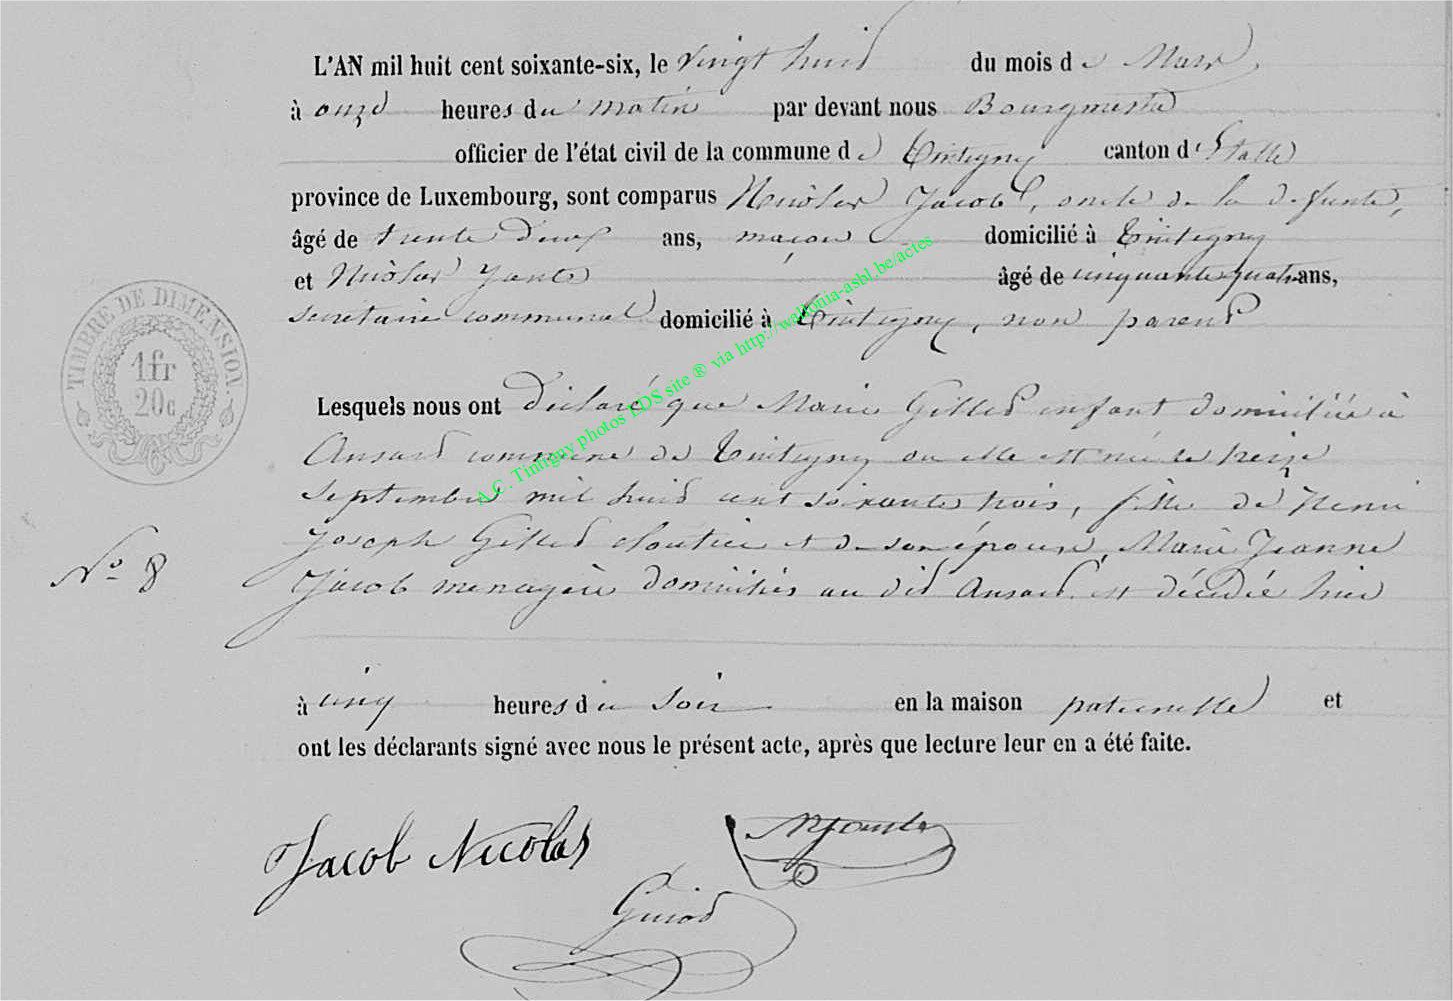 L'AN mil huit cent soixante-six, le vingt huit du mois de Mars
à onze heures du matin par devant nous Bourgmestre
officier de l'état civil de la commune de Tintigny canton d'Etalle
province de Luxembourg, sont comparus Nicolas Jacob, oncle de la défunte,
âgé de trente deux ans, maçon domicilié à Tintigny
et Nicolas Yante âgé de cinquante quatre ans,
secretaire communal domicilié à Tintigny, non parent
TIMBRE DE DIMENSION.
1fr
20c
Lesquels nous ont déclaré que Marie Gilles enfant domiciliée à
Ansart commune de Tintigny ou elle est née le treize
septembre mil huit cent soixante trois, fille de Henri
Joseph Gilles cloutier et de son épouse, Marie Jeanne
Jacob menagère domiciliés au dit Ansart est décédée hier
N° 8
à cinq heures du soir en la maison paternelle et
ont les déclarants signé avec nous le présent acte, après que lecture leur en a été faite.
Jacob Nicolas NYante
A.C. Tintigny photos EDS site ® via http://wallonia-asbl.be/actes